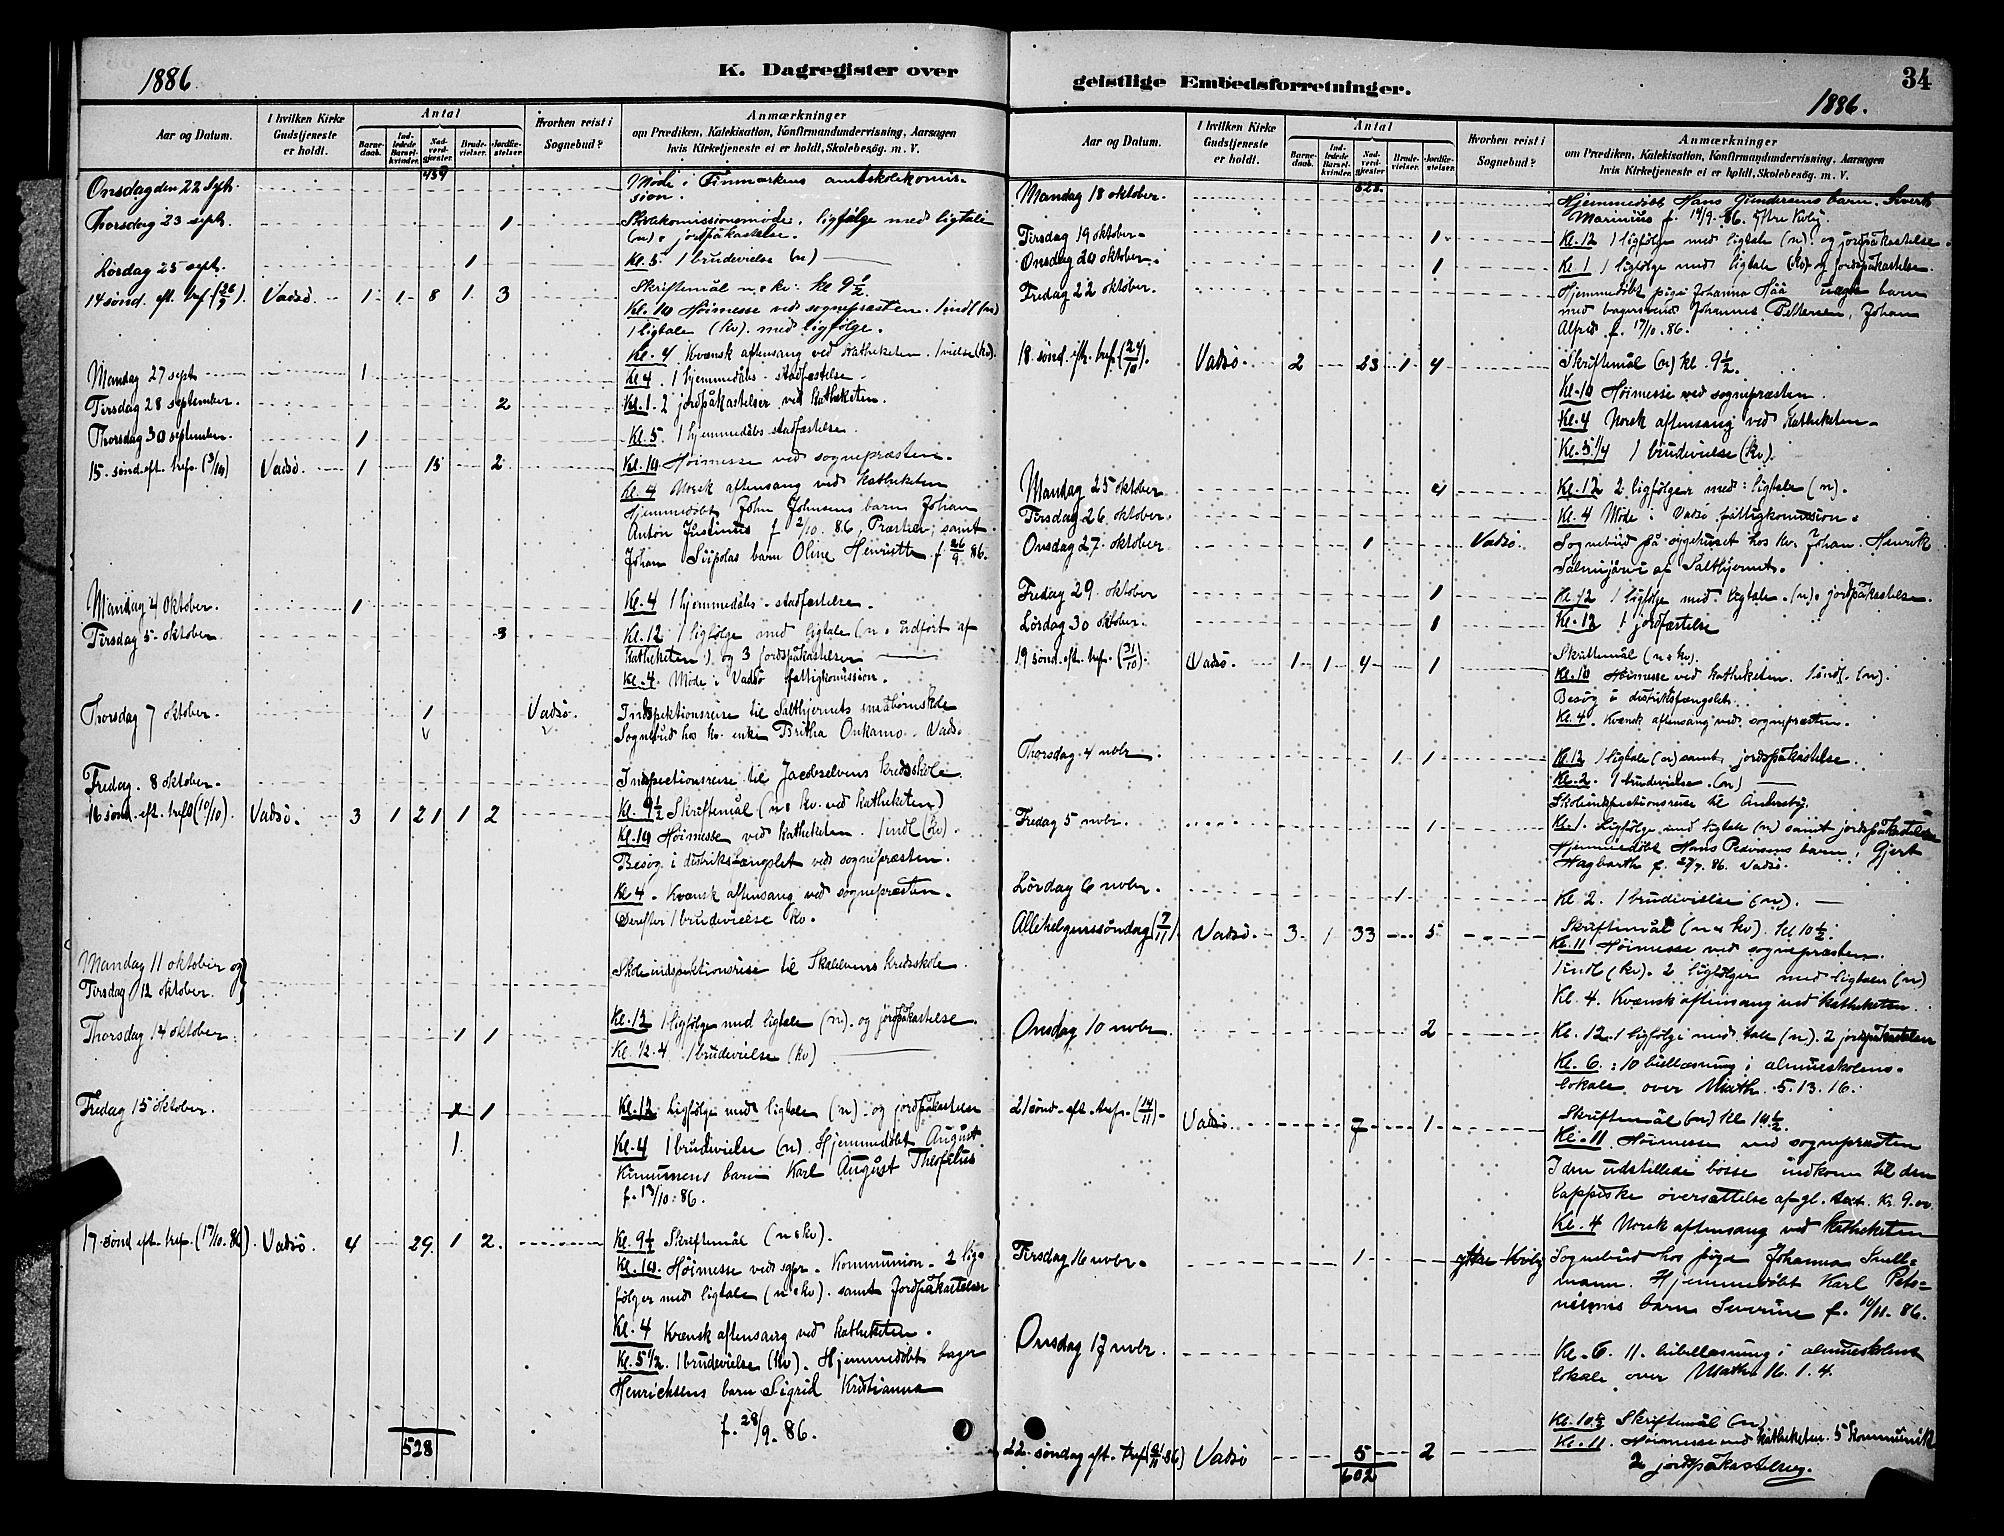 1886
K. Dagregister over
Aar og Datum.
I hvilken Kirke Gudstjeneste er holdt.
Antal
Barnedaab.
Indledede Barselkvinder.
Nadverdgjester.
Brudevielser.
Jordfæstelser.
Hvorhen reist i Sognebud?
Anmærkninger
om Prædiken, Katekisation, Konfirmandundervisning, Aarsagen
hvis Kirketjeneste ei er holdt, Skolebesøg. m. V.
459
Onsdag den 22 Sept. Møde i Finmarkens amtskolekomis-
sion.
Thorsdag 23 sept. 1 Skolekomissionsmøde. ligfølge med ligtale
(n) jordpåkastelse.
Lørdag 25 sept. 1 Kl. 5. 1 brudevielse (n)
14 sønd. eft. tref. (26/9). Vadsø. 1 1 8 1 3 Skriftemål n & kv. kl 9 1/2
Kl. 10 Høimesse ved sognepræsten. 1 indl (n)
1 ligtale (kv). med ligfølge.
Kl. 4 Kvænsk aftensang ved katheketen. 1 vielse (kv).
Mandag 27 sept 1 Kl. 4. 1 hjemmedåbs-stadfæstelse.
Tirsdag 28 september. 2 Kl. 1. 2 jordpåkastelser ved katheketen.
Thorsdag 30 september. 1 Kl. 5. 1 hjemmedåbs stadfæstelse.
15. sønd. eft. tref. (3/10) Vadsø. 1 15 2 Kl. 10 Høimesse ved sognepræsten.
Kl. 4 Norsk aftensang ved katheketen
Hjemmedøbt John Johnsens barn Johan
Anton Justinus f 2/10. 86. Præstelv; samt
Johan Siipolas barn Oline Henriette f. 26/9 86.
Mandag 4 oktober. 1 Kl. 4 1 hjemmedåbs-stadfæstelse.
Tirsdag 5. oktober. 3 Kl. 12 1 ligfølge med ligtale (n. udført af
katheketen) og 3 jordspåkastelser
Kl. 4. Møde i Vadsø fattigkomission.
Thorsdag 7 oktober. 1 Vadsø. Indspektionsreise til Salthjernets småbørnskole
Sognebud hos kv. enke Britha Onkamo. Vadsø
Fredag. 8 oktober. Inspectionsreise til Jacobselvens kredsskole
16 sønd. eft. trefs (10/10). Vadsø. 3 1 21 1 2 Kl. 9 1/2 Skriftemål (n & kv. ved katheketen)
Kl. 10 Høimesse ved katheketen. 1 indl (kv).
Besøg i distriksfængslet ved sognepræsten.
Kl 4. Kvænsk aftensang ved sognepræsten.
Derefter 1 brudevielse kv.
Mandag 11 oktober og
Tirsdag 12 oktober. Skoleindspektionsreise til Skallelvens kredsskole.
Thorsdag 14 oktober. 1 1 Kl. 12 1 ligfølge med ligtale (n). og jordpåkastelse.
Kl. 1/2 4 1 brudevielse (kv)
Fredag 15 oktober. 1 Kl. 12 Ligfølge med ligtale (n). og jordpåkastelse
1 Kl. 4 1 brudevielse (n) Hjemmedøbt August
Kimunens barn Karl August Theofilus
f. 13/10. 86.
17. sønd eft. tref. (17/10. 86) Vadsø. 4 29 1 2 Kl. 9 1/2 Skriftemål (n & kv).
Kl. 10. Høimesse ved sgpr. Kommunion. 2 lig-
følger med ligtale (n & kv). samt jordpåkastelser
Kl. 4 Kvænsk aftensang ved katheketen.
Kl. 5 1/2. 1 brudevielse (kv). Hjemmedøbt bager
Henrichsens barn Sigrid Kristianna
f. 28/9. 86.
528
geistlige Embedsforretninger.
34
1886.
Aar og Datum.
I hvilken Kirke Gudstjeneste er holdt.
Antal
Barnedaab.
Indledede Barselkvinder.
Nadverdgjester.
Brudevielser.
Jordfæstelser.
Hvorhen reist i Sognebud?
Anmærkninger
om Prædiken, Katekisation, Konfirmandundervisning, Aarsagen
hvis Kirketjeneste ei er holdt, Skolebesøg. m. V.
528.
Mandag 18 oktober. Hjemmedøbt Hans Gundersens barn. Sverk
Marinius f. 14/9. 86. Ytre Kiby
Tirsdag 19 oktober. 1 Kl. 12 1 ligfølge med ligtale (n). og jordpåkastelse.
Onsdag 20 oktober. 1 Kl 1 1 ligfølge med ligtale (kv) og jordspåkastelse.
Fredag 22 oktober. Hjemmedøbt pige Johanna Håå uægte barn
med bagersvend Johannes Pettersen, Johan
Alfred f. 17/10. 86.
18 sønd. eft. tref. (24/10). Vadsø. 2 23 1 4 Skriftemål (n) kl. 9 1/2.
Kl. 10 Høimesse ved sognepræsten.
Kl. 4 Norsk aftensang ved katheketen.
Kl. 5 1/4 1 brudevielse (kv).
Mandag 25 oktober 4 Kl. 12 2 ligfølger med ligtale (n).
Tirsdag 26. oktober. Kl. 4 Møde i Vadsø fattigkomission.
Onsdag 27. oktober 1 Vadsø. Sognebud på sygehuset hos kv. Johan Henrik
Salmijärvi af Salthjernet.
Fredag 29. oktober 1 Kl. 12 1 ligfølge med ligtale. (n). jordpåkastelse.
Lørdag 30 oktober. 1 Kl. 12 1 jordfæstelse
19 sønd. eft. tref. (31/10). Vadsø. 1 1 4 1 Skriftemål (n & kv).
Kl. 10 Høimesse ved katheketen. 1 indl. (n).
Besøg i distriktsfængslet.
Kl. 4. Kvænsk aftensang ved sognepræsten.
Thorsdag 4 novbr 1 1 Kl. 12 1 ligtale (n) samt jordspåkastelse.
Kl. 2. 1 brudevielse (n)
Skoleindspectionsreise til Andersby.
Fredag 5 novbr. 1 Kl. 1. Ligfølge med ligtale (n) samt jordspåkastelse
Hjemmedøbt Hans Pedersens barn: Gjert
Hagbarth f. 27/7. 86. Vadsø.
Lørdag 6 novbr. 1 Kl. 2. 1 brudevielse (n).
Allehelgenssøndag (7/11). Vadsø. 3 1 33 5 Skriftemål (n & kv). kl 10 1/2.
Kl. 11 Høimesse ved sognepræsten.
1 indl (kv). 2 ligfølger med ligtaler (n)
Kl. 4. Kvænsk aftensang ved katheketen.
Onsdag 10 novbr. 2 Kl. 12. 1 ligfølge med tale (n). 2 jordpåkastelser
Kl. 6. 10 bibellæsning i almueskolens
lokale over Math. 5. 13. 16.
21 sønd. eft. tref. (14/11). Vadsø. 7 1 Skriftemål (n) kl 10 1/2.
Kl. 11 Høimesse ved sognepræsten
I den udstillede bøsse indkom til den
lappiske oversættelse af gl. test. Kr 9.00
Kl. 4 Norsk aftensang ved katheketen
Tirsdag 16 novbr. 1 Ytre Kiby Sognebud hos pige Johanna Snell-
mann. Hjemmedøbt Karl Pets-
barn Severine f. 10/11. 86.
Onsdag 17 novbr. Kl. 6. 11. bibellæsning i almueskolens
lokale over Math 16. 1. 4.
Kl. 10 1/2 Skriftemål (n)
22. søndag eft. tref. (21/11 86) Vadsø 5 2 Kl. 11. Høimesse ved katheketen. 5 kommunik
2 jordspåkastelser.
602